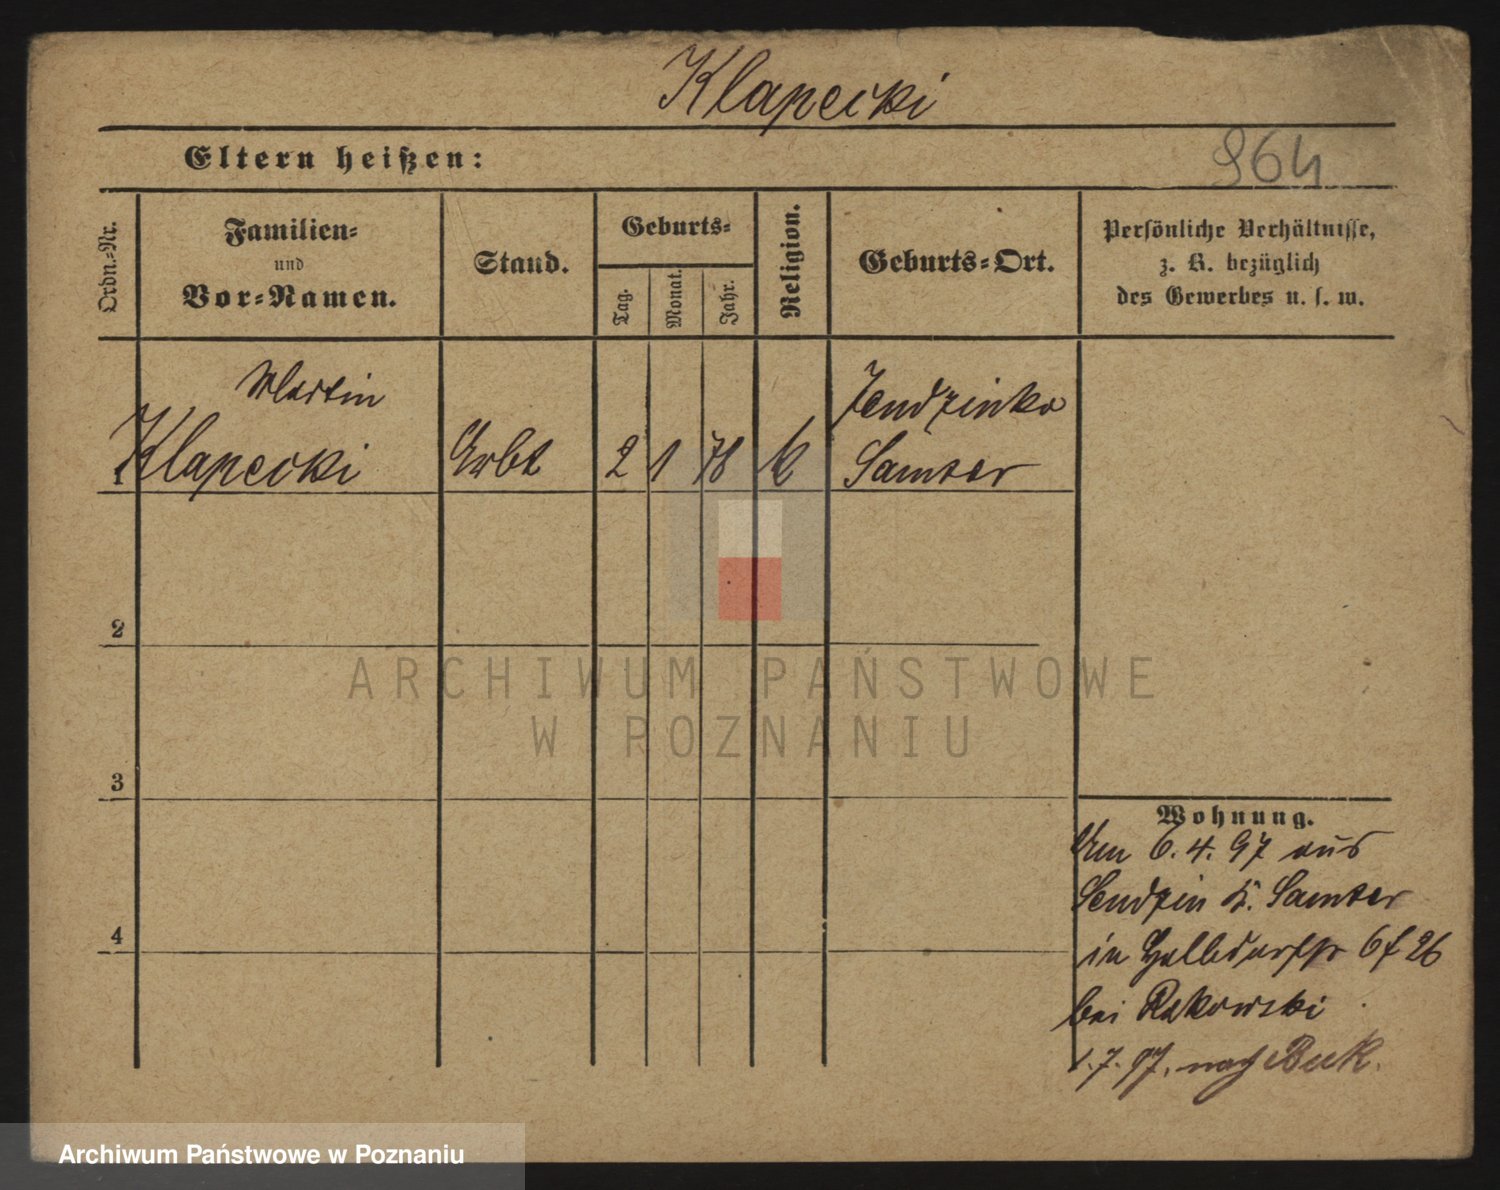 Klapecki
Eltern heißen:
964
Ordn.-Nr.
Familien-
und
Vor-Namen.
Stand.
Geburts-
Tag.
Monat.
Jahr.
Religion.
Geburts-Ort.
Persönliche Verhältnisse,
z. B. bezüglich
des Gewerbes u. s. w.
Martin
1 Klapecki
Arbt
2 1 78
k
Sendzinko
Samter
2
3
4
Wohnung.
Am 6. 4. 97 aus
Sendzin K. Samter
in Halbdorfstr 26
bei Rakowski
1. 7. 97. nach Buk.
ARCHIWUM PAŃSTWOWE
W POZNANIU
Archiwum Państwowe w Poznaniu